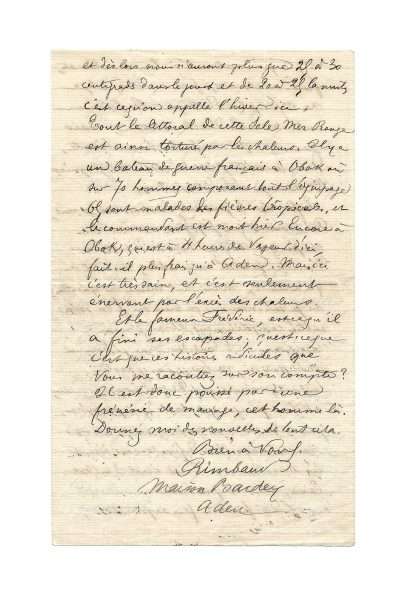 et dès lors nous n'aurons plus que 25 à 30
centigrads dans le jour, et de 20 à 25 la nuit,
c'est ce qu'on appelle l'hiver ici.
Tout le littoral de cette sale Mer Rouge
est ainsi torturé par les chaleurs. Il y a
un bateau de guerre français à Obok où
sur 70 hommes composant tout l'équipage
65 sont malades des fièvres tropicales, et
le commandant est mort hier. Encore à
Obok, qui est à 4 heures de vapeur d'ici
fait-il plus frais qu'à Aden. Mais ici
c'est très sain, et c'est seulement
énervant par l'excès des chaleurs.
Et le fameux Frédéric, est-ce qu'il
a fini ses escapades; qu'est-ce que
c'est que ces histoires ridicules que
vous me racontiez sur son compte?
Il est donc poussé par une
frénésie de mariage, cet homme là.
Donnez moi des nouvelles de tout cela.
Bien à vous,
Rimbaud
Maison Bardey
Aden